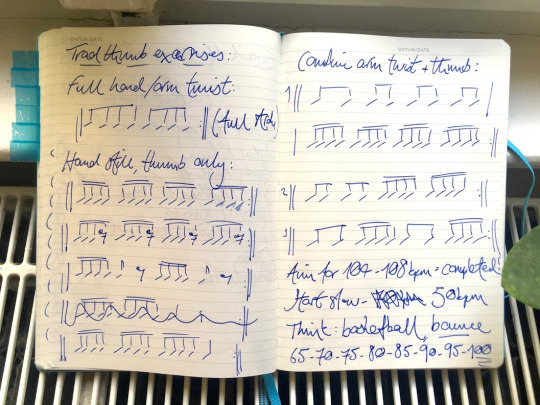 DATUM/DATE
Trad thumb exercises:
Full hand/arm twist:
(full stick)
Hand still, thumb only:
DATUM/DATE
Combine arm twist + thumb:
1
2
3
Aim for 104-108bpm = completed!
Start slow - 50bpm
Think: basketball bounce
65-70-75-80-85-90-95-100